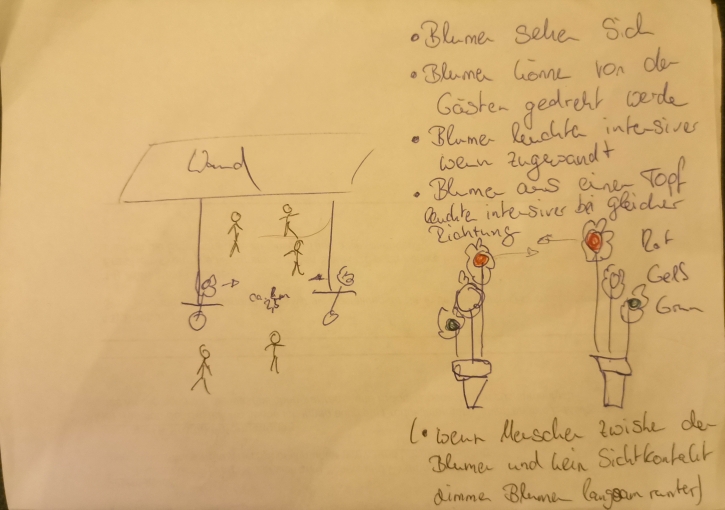 Wand
ca. 2,5 m
• Blumen sehen sich
• Blumen könne von den
Gästen gedreht werde
• Blumen leuchte intensiver
wenn zugewandt
• Blumen aus einen Topf
leuchte intensiver bei gleicher
Richtung
Rot
Gelb
Grün
(• wenn Menschen zwischen den
Blumen und kein Sichtkontakt
dimmen Blumen langsam runter)